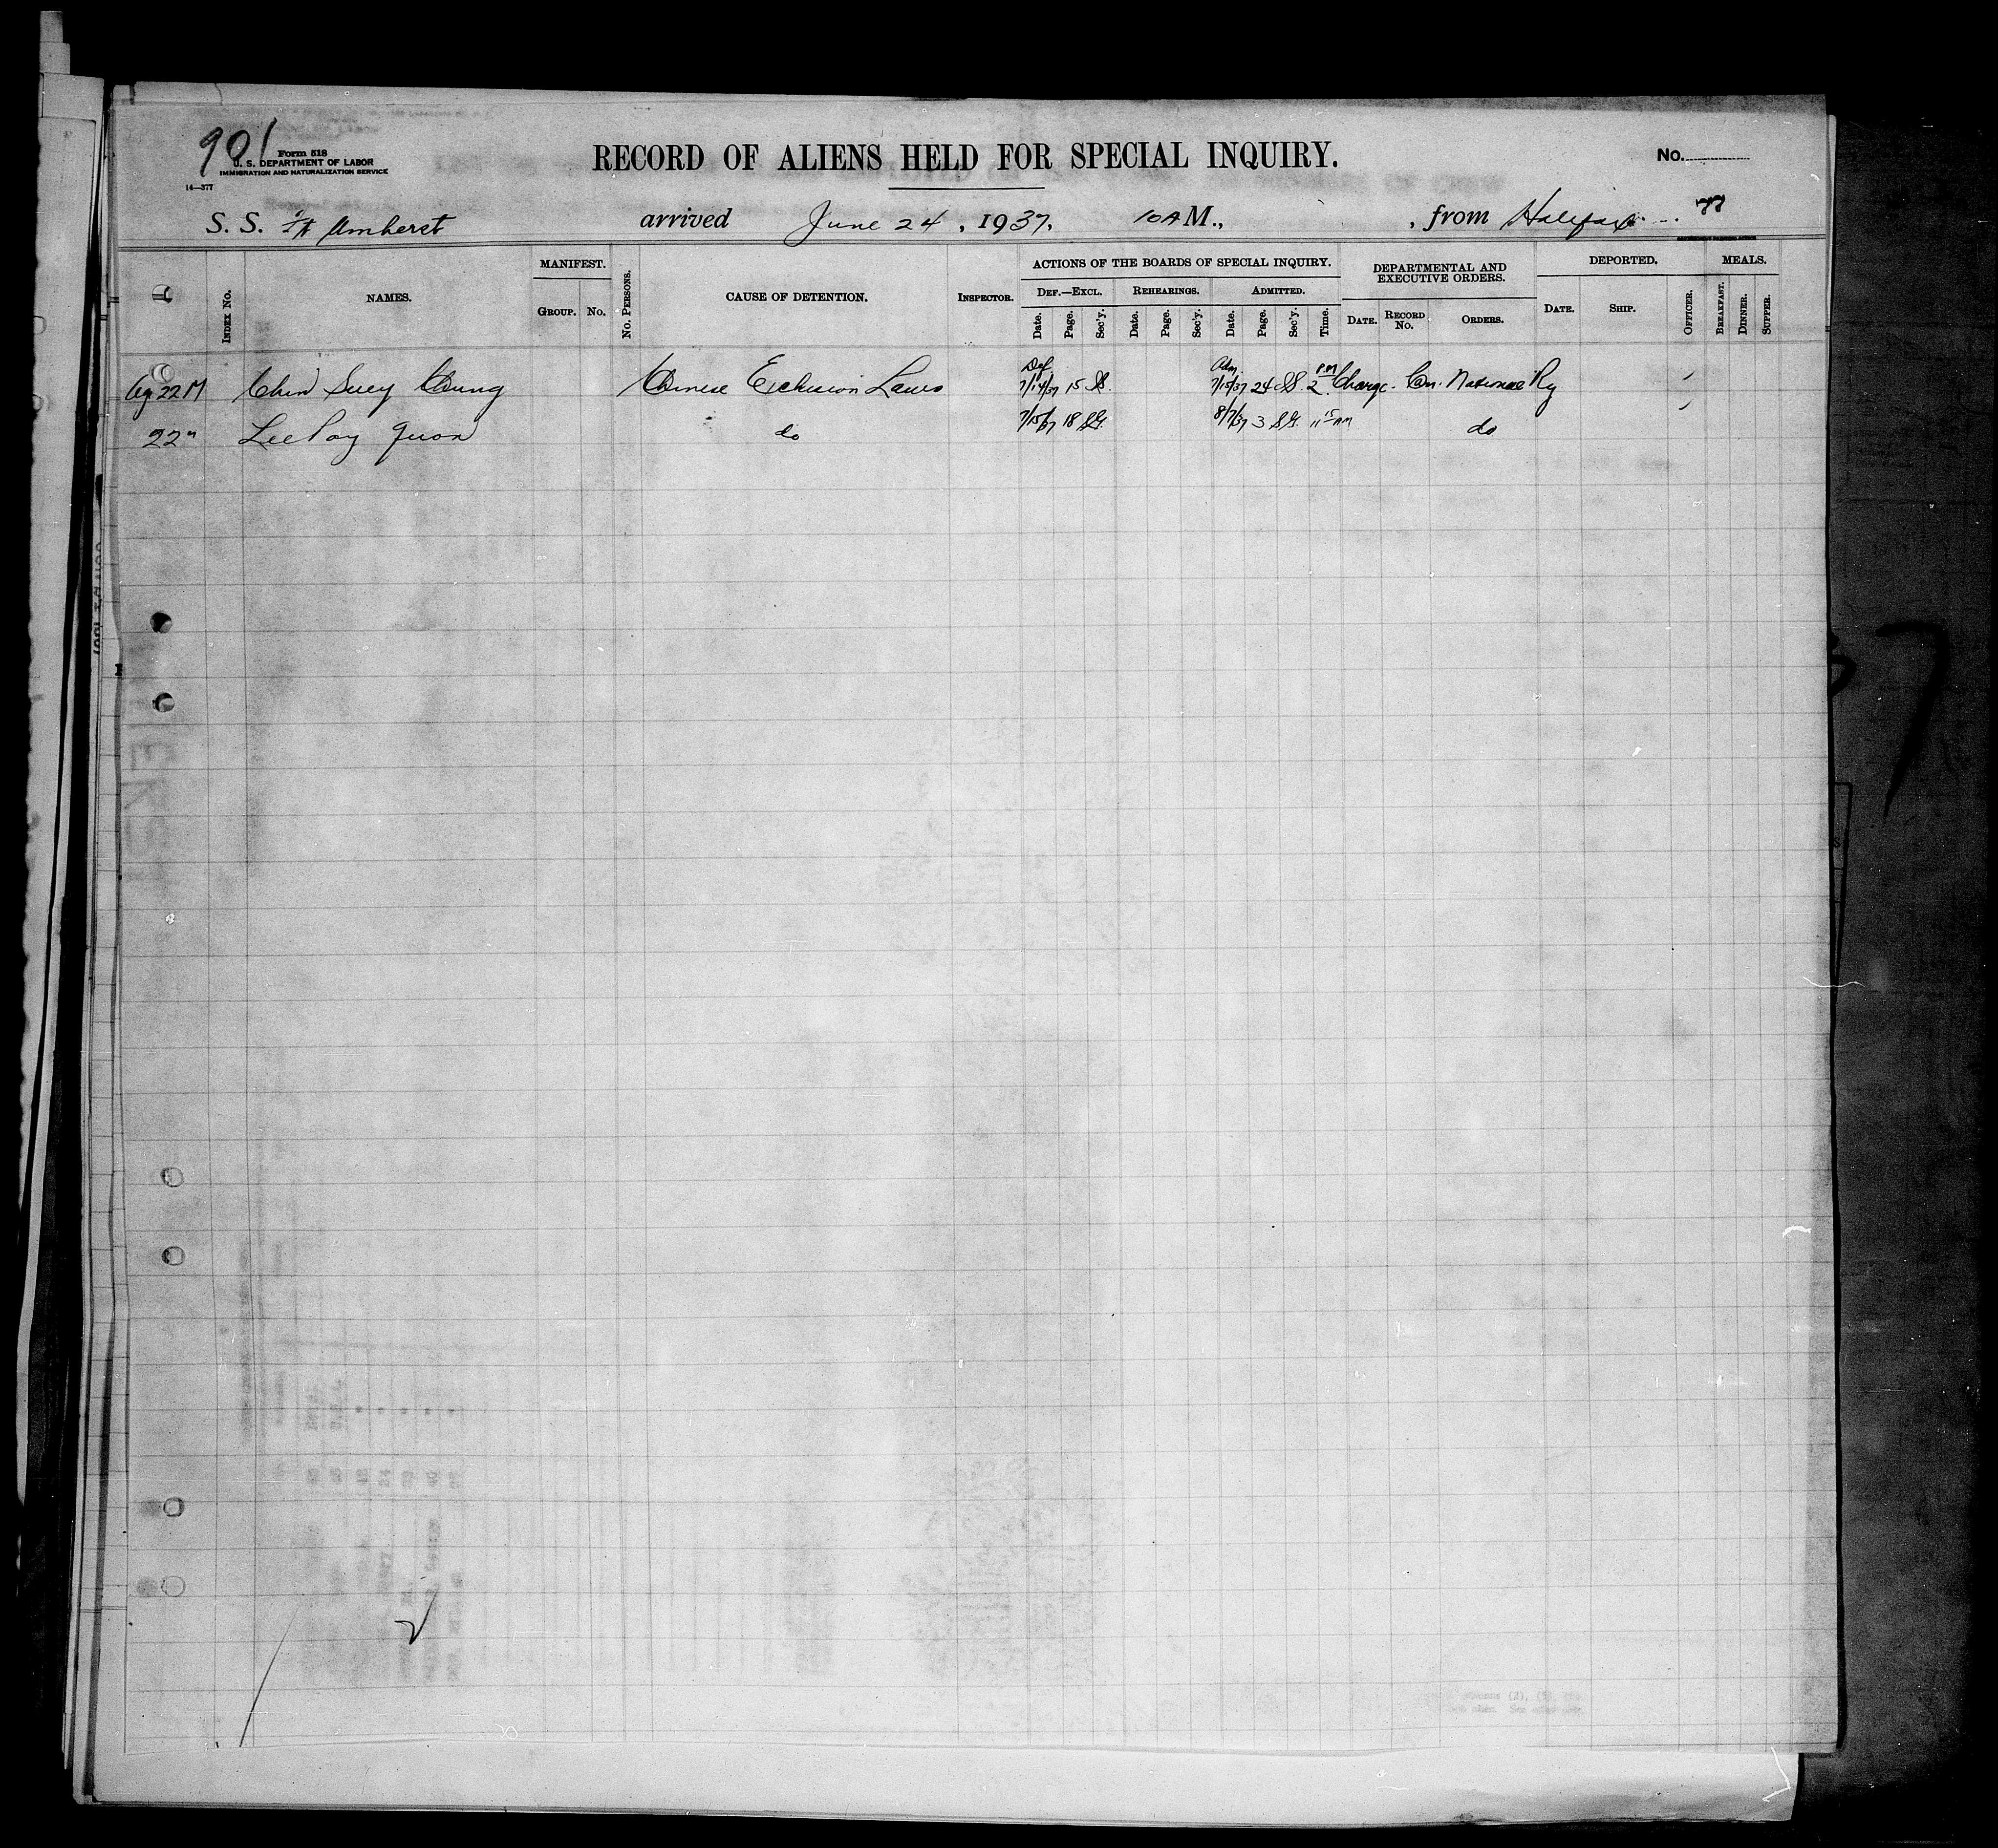 901
Form 518
U. S. DEPARTMENT OF LABOR
IMMIGRATION AND NATURALIZATION SERVICE
14—377
RECORD OF ALIENS HELD FOR SPECIAL INQUIRY.
No.
S. S. Ft Amherst arrived June 24, 1937, 10 A M., , from Halifax 77
INDEX NO.
NAMES.
MANIFEST.
GROUP. NO.
NO. PERSONS.
CAUSE OF DETENTION.
INSPECTOR.
ACTIONS OF THE BOARDS OF SPECIAL INQUIRY.
DEF.—EXCL. REHEARINGS. ADMITTED.
Date. Page. Sec'y. Date. Page. Sec'y. Date. Page. Sec'y. Time.
DEPARTMENTAL AND
EXECUTIVE ORDERS.
DATE. RECORD NO. ORDERS.
DEPORTED.
DATE. SHIP. OFFICER.
MEALS.
BREAKFAST. DINNER. SUPPER.
Def Adm. PM
22 M Chin Suey Chung Chinese Exclusion Laws 7/14/37 15 7/15/37 24 2 Charge Can. National Ry
22 " Lee Poy Quon do 7/15/37 18 SG. 8/7/37 3 SG. 11 15 AM do